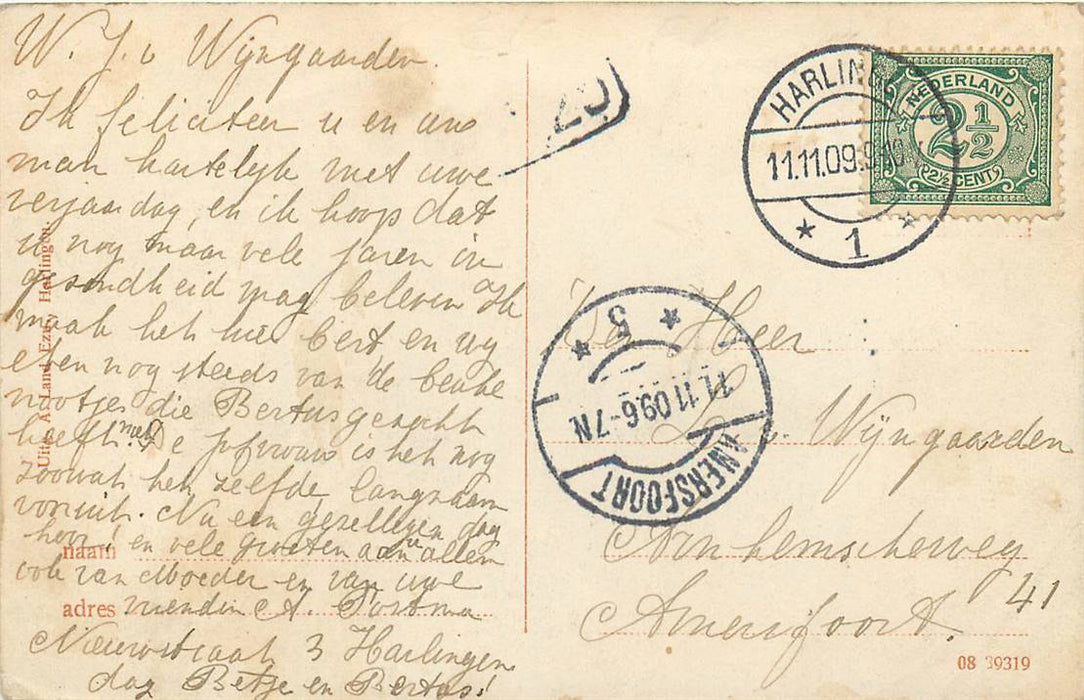 W. J. v Wijngaarden.
Ik feliciteer u en uw
man hartelyk met uwe
verjaardag, en ik hoop dat
u nog maar vele jaren in
gezondheid mag beleven Ik
maak het hier best en wy
eten nog steeds van de
nootjes die Bertus gezocht
heeft. met De is het nog
zoowat het zelfde langzaam
vooruit. Nu een gezelligen dag
hoor! en vele groeten aan allen
ook van Moeder en van uwe
vriendin A. Postma
Nieuwstraat 3 Harlingen
dag Betje en Bertus!
naam
adres
Uitg. A. Land Ezn., Harlingen.
HARLINGEN
11.11.09.9
1
NEDERLAND
2½
2½ CENT
AMERSFOORT
11.11.09.6-7N
5
De Heer
L. v. Wijngaarden
Arnhemscheweg
41
Amersfoort.
08 39319